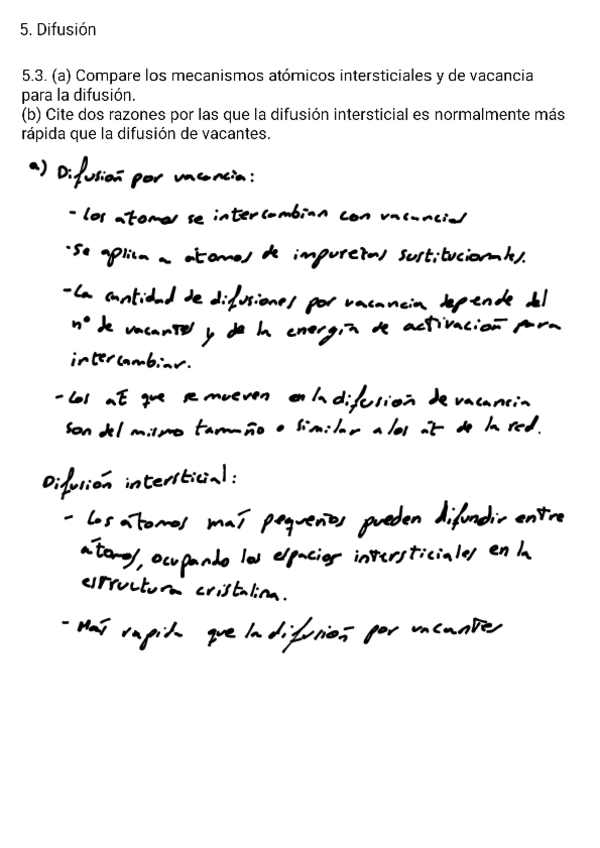 5. Difusión
5.3. (a) Compare los mecanismos atómicos intersticiales y de vacancia
para la difusión.
(b) Cite dos razones por las que la difusión intersticial es normalmente más
rápida que la difusión de vacantes.
a) Difusión por vacancia:
- Los átomos se intercambian con vacancias
- Se aplica a átomos de impurezas sustitucionales.
- La cantidad de difusiones por vacancia depende del
nº de vacantes y de la energía de activación para
intercambiar.
- Los at que se mueven en la difusión de vacancia
son del mismo tamaño o similar a los at de la red.
Difusión intersticial:
- Los átomos más pequeños pueden difundir entre
átomos, ocupando los espacios intersticiales en la
estructura cristalina.
- Más rapida que la difusión por vacantes